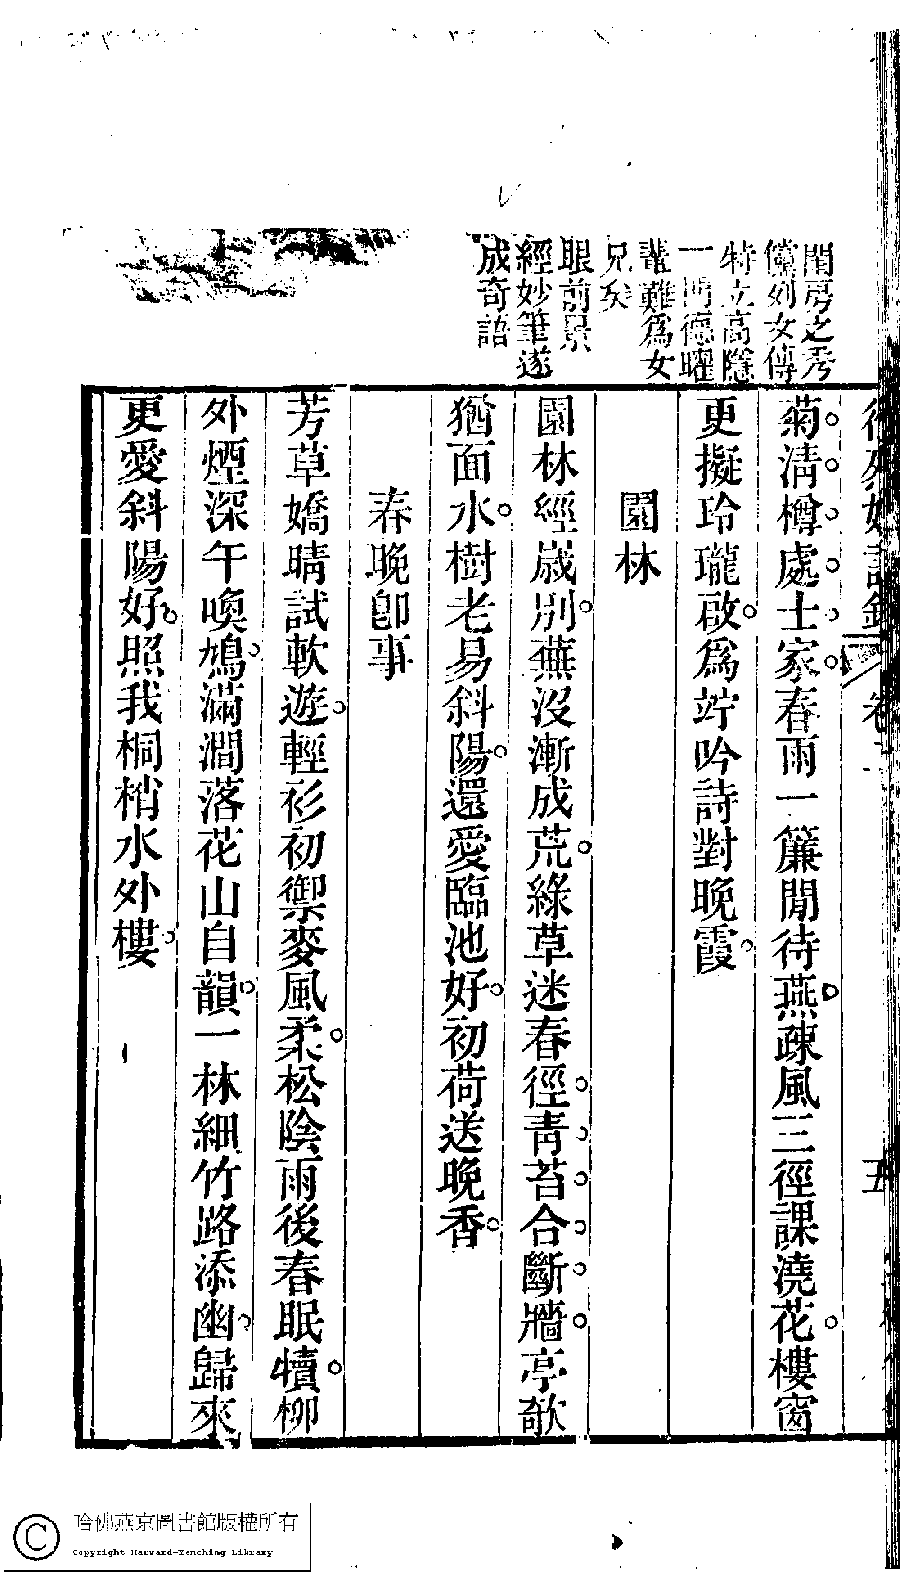 閨房之秀
儻列女傳
特立高隱
一門德曜
輩難爲女
兄矣
眼前景
經妙筆遂
成奇語
五
菊清樽處士家春雨一簾閒待燕疎風三徑課澆花樓窗
更擬玲瓏啟爲竚吟詩對晚霞
園林
園林經歲別蕪沒漸成荒綠草迷春徑青苔合斷牆亭欹
猶面水樹老易斜陽還愛臨池好初荷送晚香
春晚卽事
芳草嬌晴試軟遊輕衫初禦麥風柔松陰雨後春眠犢柳
外煙深午喚鳩滿澗落花山自韻一林細竹路添幽歸來
更愛斜陽好照我桐梢水外樓
哈佛燕京圖書館版權所有
Copyright Harvard-Yenching Library